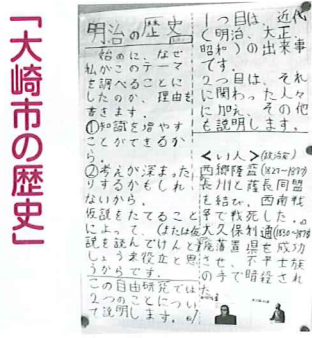 「大崎市の歴史」
明治の歴史
始めに、なぜ
私がこのテーマ
を調べることに
したのか、理由を
書きます。
①知識を増やす
ことができるか
ら。
②考えが深まった
りするかもしれ
ないから。
仮説をたてること
によって、(または仮
説を読んでけんと
しょう来役立と思
うからです。
この自由研究では
2つのことについ
て説明します。
1つ目は、近代
(明治、大正、
昭和)の出来事
です。
2つ目は、それ
に関わった人々
に加え、その他
も説明します。
<い人>(政治家)
西郷隆盛(1827〜1877)
長州と薩長同盟
を結び、西南戦
争で戦死した。
大久保利通(1830〜1878)
廃藩置県を成功
させ、不平士族
の手で暗殺され
た